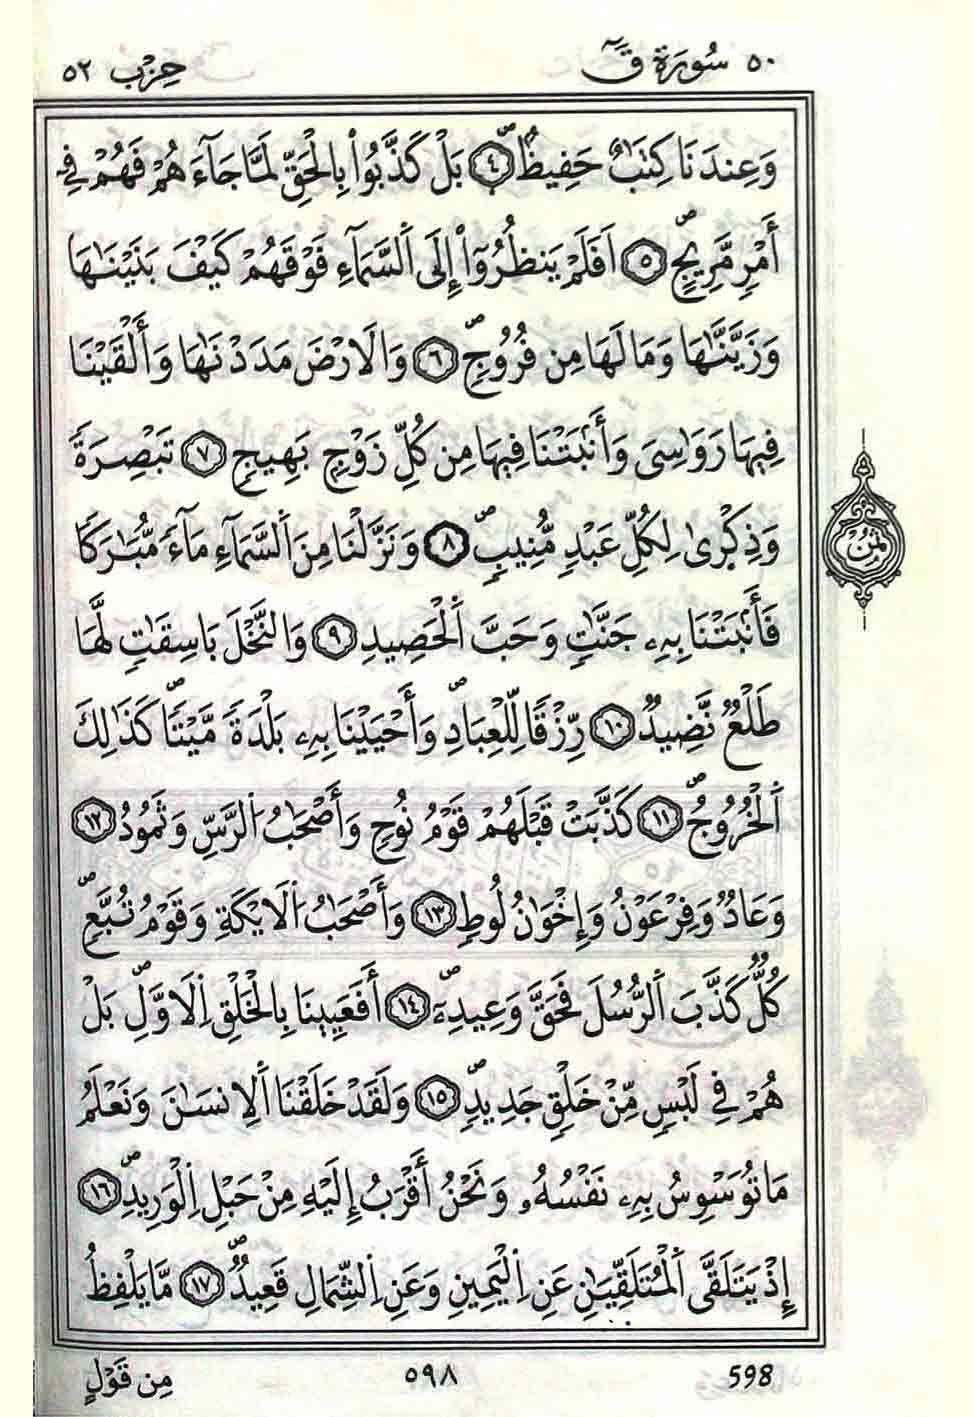 ٥٠ سُورَةُ قٓ حِزْب ٥٢
وَعِندَنَا كِتَٰبٌ حَفِيظٌۖ ٤ بَلْ كَذَّبُواْ بِالْحَقِّ لَمَّا جَآءَ هُمْ فَهُمْ فِےٓ
أَمْرٍ مَّرِيجٍۖ ٥ اَفَلَمْ يَنظُرُوٓاْ إِلَى اَ۬لسَّمَآءِ فَوْقَهُمْ كَيْفَ بَنَيْنَٰهَا
وَزَيَّنَّٰهَا وَمَا لَهَا مِن فُرُوجٍۖ ٦ وَالَارْضَ مَدَدْنَٰهَا وَأَلْقَيْنَا
فِيهَا رَوَٰسِىَ وَأَنۢبَتْنَا فِيهَا مِن كُلِّ زَوْجٍۢ بَهِيجٍ ٧ تَبْصِرَةً
وَذِكْرىٰ لِكُلِّ عَبْدٍ مُّنِيبٍۖ ٨ وَنَزَّلْنَا مِنَ اَ۬لسَّمَآءِ مَآءً مُّبَٰرَكاً
فَأَنۢبَتْنَا بِهِۦ جَنَّٰتٍ وَحَبَّ اَ۬لْحَصِيدِ ٩ وَالنَّخْلَ بَاسِقَٰتٍ لَّهَا
طَلْعٌ نَّضِيدٌ ١٠ رِّزْقاً لِّلْعِبَادِۖ وَأَحْيَيْنَا بِهِۦ بَلْدَةً مَّيْتاًۖ كَذَٰلِكَ
اَ۬لْخُرُوجُۖ ١١ كَذَّبَتْ قَبْلَهُمْ قَوْمُ نُوحٍ وَأَصْحَٰبُ اُ۬لرَّسِّ وَثَمُودُ ١٢
وَعَادٌ وَفِرْعَوْنُ وَإِخْوَٰنُ لُوطٍ ١٣ وَأَصْحَٰبُ اُ۬لَايْكَةِ وَقَوْمُ تُبَّعٍۖ
كُلٌّ كَذَّبَ اَ۬لرُّسُلَ فَحَقَّ وَعِيدِۦۖ ١٤ أَفَعَيِينَا بِالْخَلْقِ اِ۬لَاوَّلِۖ بَلْ
هُمْ فِے لَبْسٍ مِّنْ خَلْقٍ جَدِيدٍۖ ١٥ وَلَقَدْ خَلَقْنَا اَ۬لِانسَٰنَ وَنَعْلَمُ
مَا تُوَسْوِسُ بِهِۦ نَفْسُهُۥ وَنَحْنُ أَقْرَبُ إِلَيْهِ مِنْ حَبْلِ اِ۬لْوَرِيدِۖ ١٦
إِذْ يَتَلَقَّى اَ۬لْمُتَلَقِّيَٰنِ عَنِ اِ۬لْيَمِينِ وَعَنِ اِ۬لشِّمَالِ قَعِيدٌۖ ١٧ مَّا يَلْفِظُ
ثُمُن
598 ٥٩٨ مِن قَوْلٍ